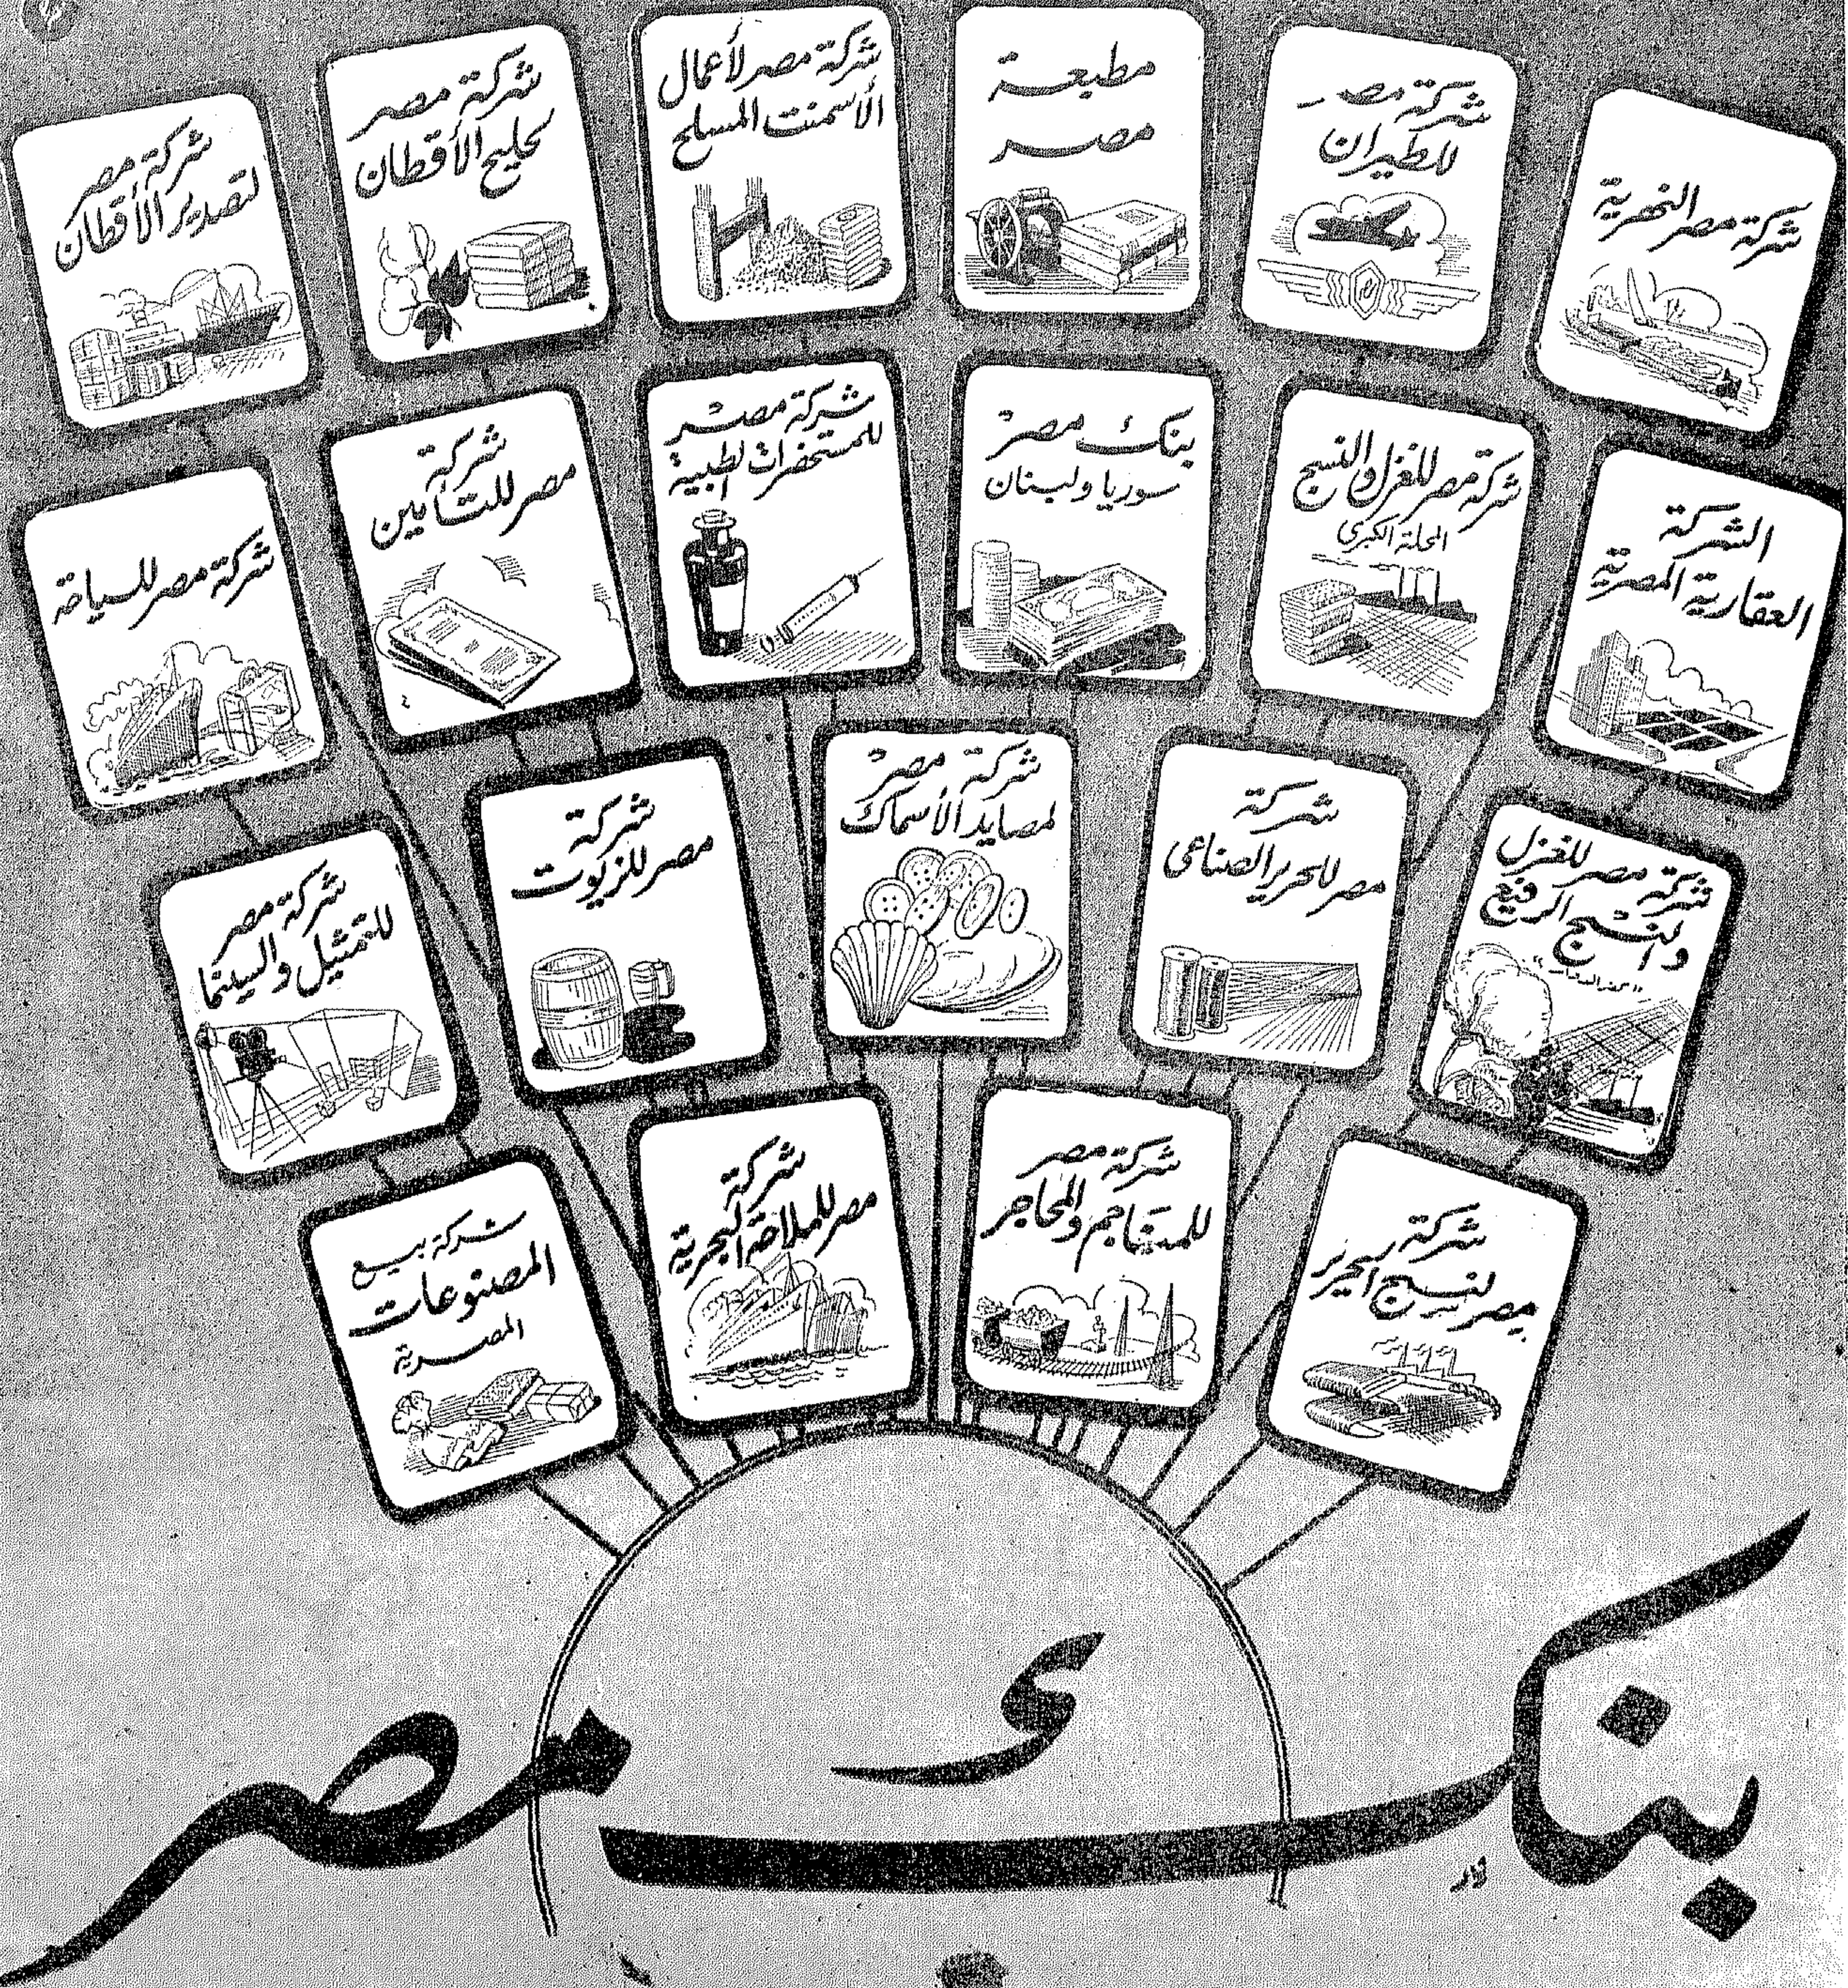 شركة مصر النهرية
شركة مصر
للطيران
مطبعة
مصر
شركة مصر لأعمال
الأسمنت المسلح
شركة مصر
لحليج الأقطان
شركة مصر
لتصدير الأقطان
الشركة
العقارية المصرية
شركة مصر للغزل والنسج
المحلة الكبرى
بنك مصر
سوريا ولبنان
شركة مصر
للمستحضرات الطبية
شركة
مصر للتأمين
شركة مصر للسياحة
شركة مصر للغزل
والنسج الرفيع
شركة
مصر للحرير الصناعى
شركة مصر
لمصايد الأسماك
شركة
مصر للزيوت
شركة مصر
للتمثيل والسينما
شركة
مصر لنسج الحرير
شركة مصر
للمناجم والمحاجر
شركة
مصر للملاحة البحرية
شركة بيع
المصنوعات
المصرية
بنك مصر